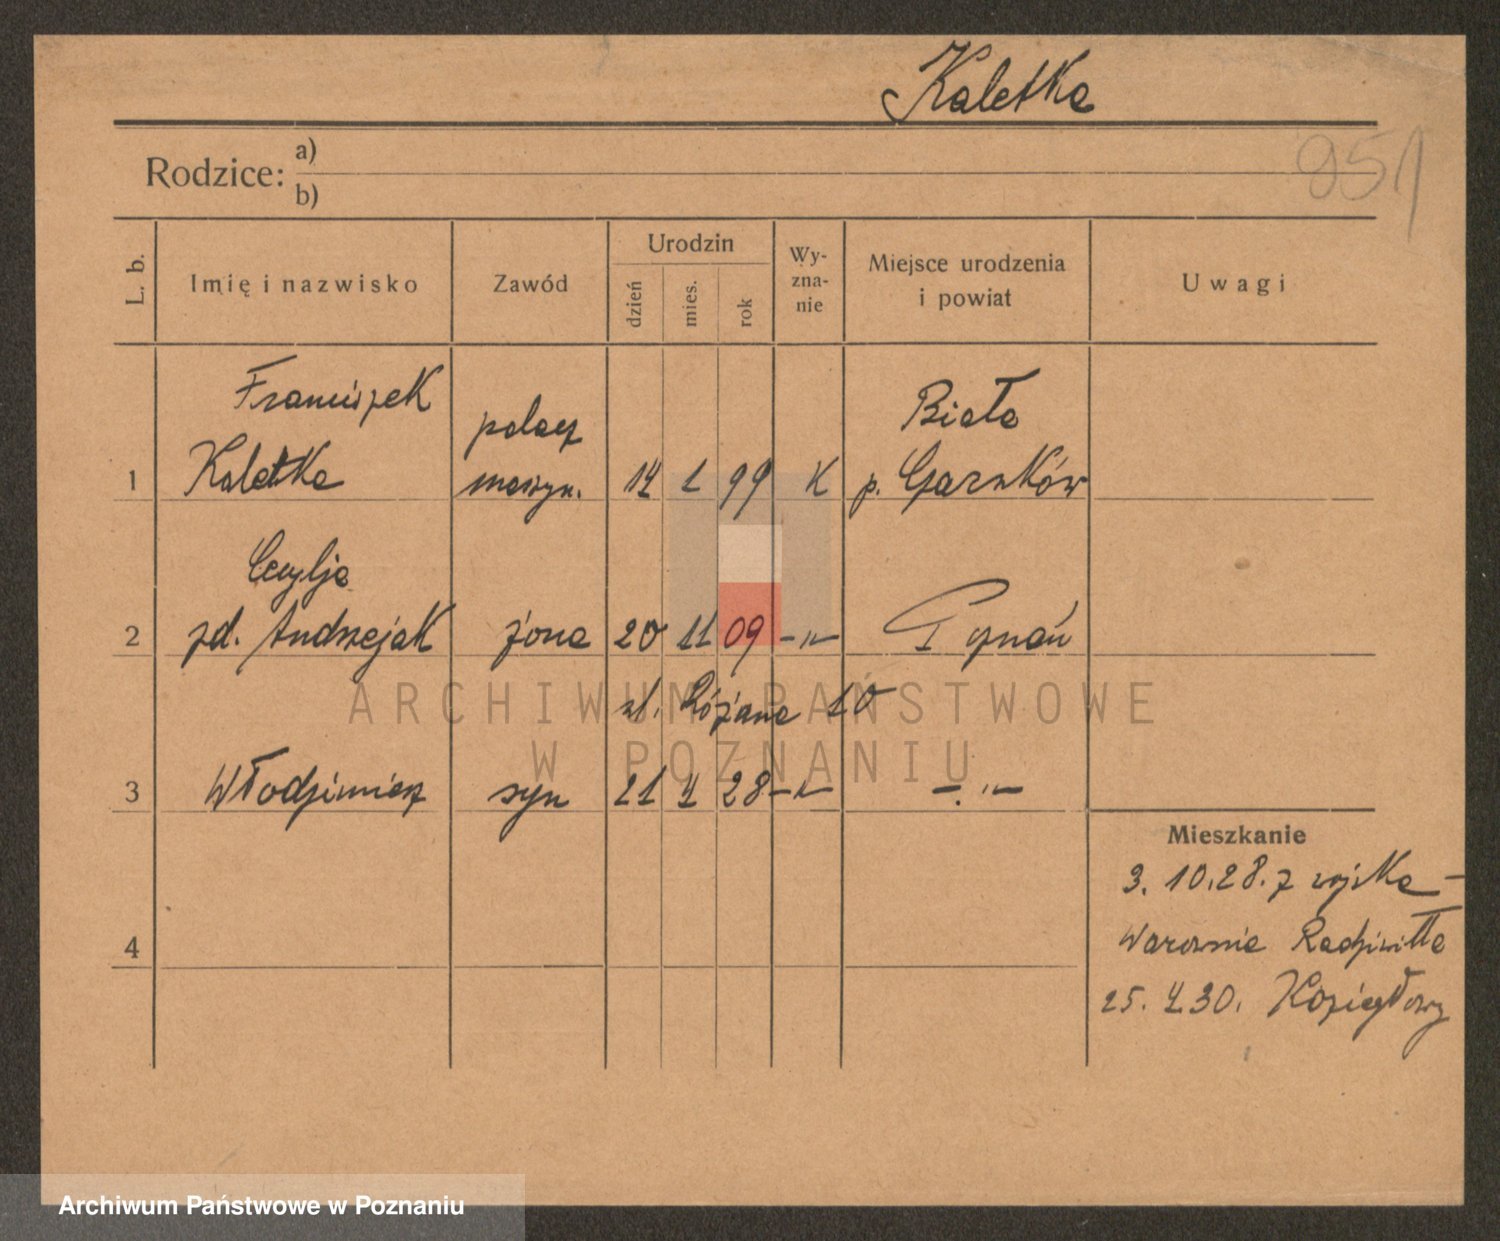 Kaletka
951
Rodzice: a)
b)
L. b.
Imię i nazwisko
Zawód
Urodzin
dzień
mies.
rok
Wy-
zna-
nie
Miejsce urodzenia
i powiat
Uwagi
Franciszek palacz Biała
1 Kaletka maszyn. 14 1 99 K p. Czarnków
Cecylja
2 zd. Andrzejak żona 20 11 09 -"- Poznań
ul. Różana 10
3 Włodzimierz syn 21 4 28 -"- -"-
Mieszkanie
3. 10.28. z wojska -
Warownia Radziwiłła
4
25. 4 30. Koziegłowy
ARCHIWUM PAŃSTWOWE
W POZNANIU
Archiwum Państwowe w Poznaniu